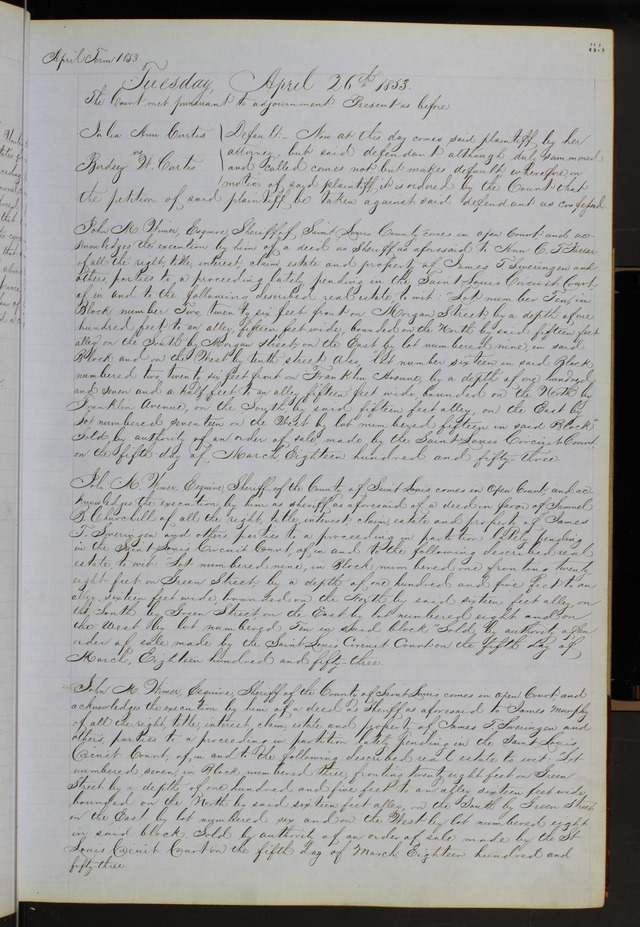 85
April Term 1853
Tuesday, April 26th 1853.
The Court met pursuant to adjournment Present as before
Julia Ann Curtis
vs
Birdsey W. Curtis
Default— Now at this day comes said plaintiff by her
attorney, but said defendant although duly summoned
and called comes not but makes default wherefore on
motion of said plaintiff it is ordered by the Court that
the petition of said plaintiff be taken against said defendant as confessed
John M. Wimer, Esquire, Sheriff of Saint Louis County comes in open Court and ac-
knowledges the execution by him of a deed as Sheriff as aforesaid to Ann C. T.
of all the right, title, interest, claim, estate and property of James T Sweringen and
others, parties to a proceeding lately pending in the Saint Louis Circuit Court,
of in and to the following described real estate, to wit: Lot number Ten, in
Block number Two, twenty six feet front on Morgan Street, by a depth of one
hundred feet to an alley fifteen feet wide, bounded on the North by said fifteen feet
alley on the South by Morgan street, on the East by lot numbered nine, in said
Block and on the West by tenth street Also, lot number sixteen in said Block
numbered two, twenty six feet front on Franklin Avenue, by a depth of one hundred
and seven and a half feet to an alley fifteen feet wide, bounded on the North by
Franklin Avenue, on the South by said fifteen feet alley, on the East by
Lot numbered seventeen on the West by lot numbered fifteen in said Block
Sold by authority of an order of sale made by the Saint Louis Circuit Court
on the fifth day of March, Eighteen hundred and fifty-three
John M. Wimer, Esquire, Sheriff of the County of Saint Louis comes in Open Court, and ac-
knowledges the execution by him as sheriff as aforesaid of a deed in favor of Samuel
B. Churchill of all the right, title, interest, claim, estate and property of James
T. Sweringen and others parties to a proceeding in partition lately pending
in the Saint Louis Circuit Court, of, in and to the following described real
estate, to wit: Lot numbered nine, in Block numbered one fronting twenty
eight feet on Green Street by a depth of one hundred and five feet to an
alley sixteen feet wide bounded on the North by said sixteen feet alley, on
the South by Green Street on the East by lot numbered eight and on
the West by lot numbered Ten in said block Sold by authority of an
order of sale made by the Saint Louis Circuit Court on the fifth day of
March, Eighteen hundred and fifty-three
John M. Wimer, Esquire, Sheriff of the County of Saint Louis comes in open Court and
acknowledges the execution by him of a deed as Sheriff as aforesaid to James Murphy
of all the right, title, interest, claim, estate and property of James T Sweringen and
others, parties to a proceeding in partition lately pending in the Saint Louis
Circuit Court, of, in and to the following described real estate to wit: Lot
numbered seven in Block numbered three, fronting twenty eight feet on Green
Street by a depth of one hundred and five feet to an alley sixteen feet wide,
bounded on the North by said sixteen feet alley, on the South by Green Street
on the East by lot numbered six and on the West by lot numbered eight
in said block Sold by authority of an order of sale made by the St
Louis Circuit Court on the fifth day of March Eighteen hundred and
fifty-three